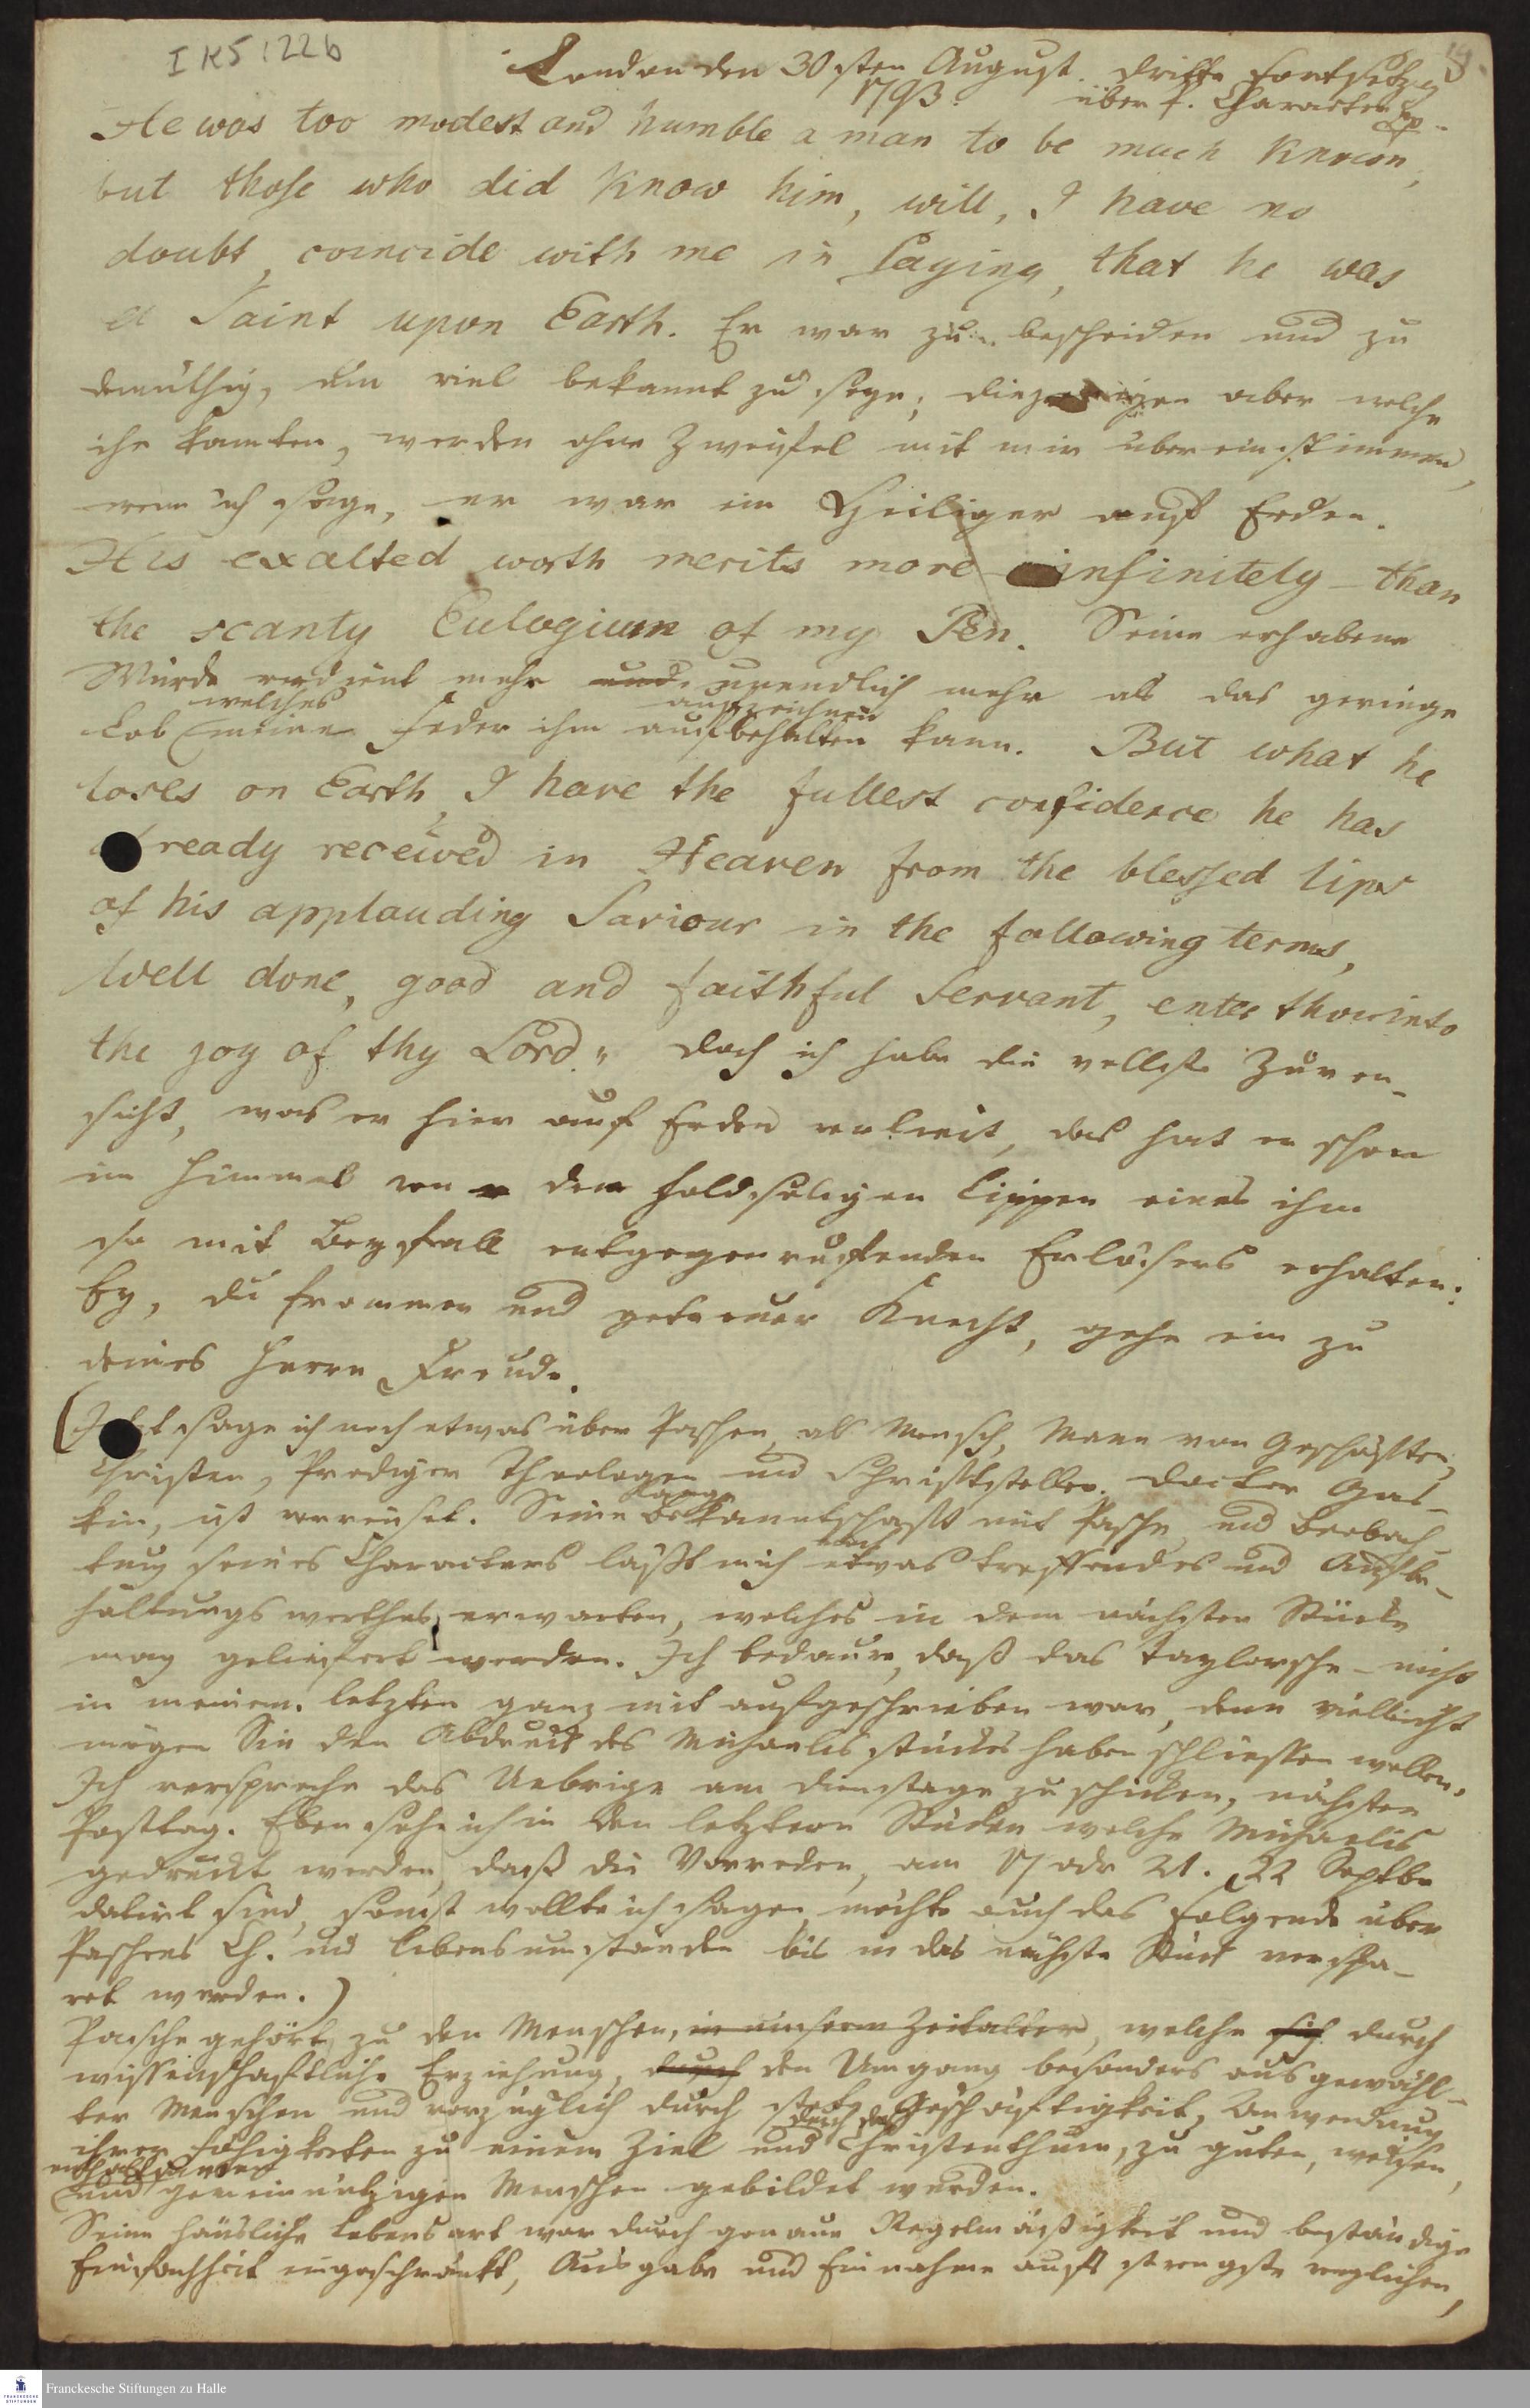 I K5:22b
London den 30sten August. dritte Fortsetzg
1793. über s. Charackter
He was too modest and humble a man to be much known,
but those who did know him, will, I have no
doubt, coincide with me in saying, that he was
a Saint upon Earth. Er war zu bescheiden und zu
demüthig, um viel bekannt zu seyn; diejenigen aber welche
ihn kannten, werden ohne Zweifel mit mir übereinstimmen,
wenn ich sage, er war ein Heiliger auf Erden.
His exalted worth merits more infinitely than
the scanty Eulogium of my Pen. Seine erhabene
Würde verdient mehr und unendlich mehr als das geringe
welches aufzeichnen
Lob meine Feder ihm aufbehalten kann. But what he
loses on Earth, I have the fullest confidence he has
already received in Heaven from the blessed lips
of his applauding Saviour in the following terms,
Well done, good and faithful Servant, enter thou into
the joy of thy Lord." Doch ich habe die vollste Zuver-
sicht, was er hier auf Erden verliert, das hat er schon
im Himmel von den holdseligen Lippen eines ihm
so mit Beyfall entgegenrufenden Erlösers erhalten:
Ey, du frommer und getreuer Knecht, gehe ein zu
deines Herrn Freude.
(Jetzt sage ich noch etwas über Paschen, als Mensch, Mann von Geschäften,
Christen, Prediger Theologen und Schriftsteller. Docktor Gas-
lange
kin, ist verreiset. Seine Bekanntschaft mit Pasche, und Beobach-
noch
tung seines Charackters läßt mich etwas treffendes und Aufbe-
haltungswerthes erwarten, welches in dem nächsten Stücke
mag geliefert werden. Ich bedaure, daß das Taylorsche nicht
in meinem letzten ganz mit aufgeschrieben war, denn vielleicht
mögen Sie den Abdruck des Michaelis stückes haben schliessen wollen.
Ich verspreche das Uebrige am Dienstage zu schicken, nächsten
Posttag. Eben sehe ich in den letztern Stücken welche Michaelis
gedruckt werden, daß die Vorreden, am 17 odr 21. 22 Septbr
datirt sind, sonst wollte ich sagen, möchte auch das Folgende über
Paschens Ch. und Lebensumständen bis in das nächste Stück verspa-
ret werden.)
Pasche gehört zu den Menschen, in unserm Zeitalter, welche sich durch
wissenschaftliche Erziehung, durch den Umgang besonders ausgewähl-
ter Menschen und vorzüglich durch stete Geschäftigkeit, Anwendung
durch das
ihrer Fähigkeiten zu einem Ziel und Christenthum, zu guten, weisen,
und gemeinnützigen Menschen gebildet wurden.
Seine häusliche Lebensart war durch genaue Regelmäßigkeit und beständige
Einfachheit eingeschränkt, Ausgabe und Einnahme aufs strengste verglichen,
Franckesche Stiftungen zu Halle